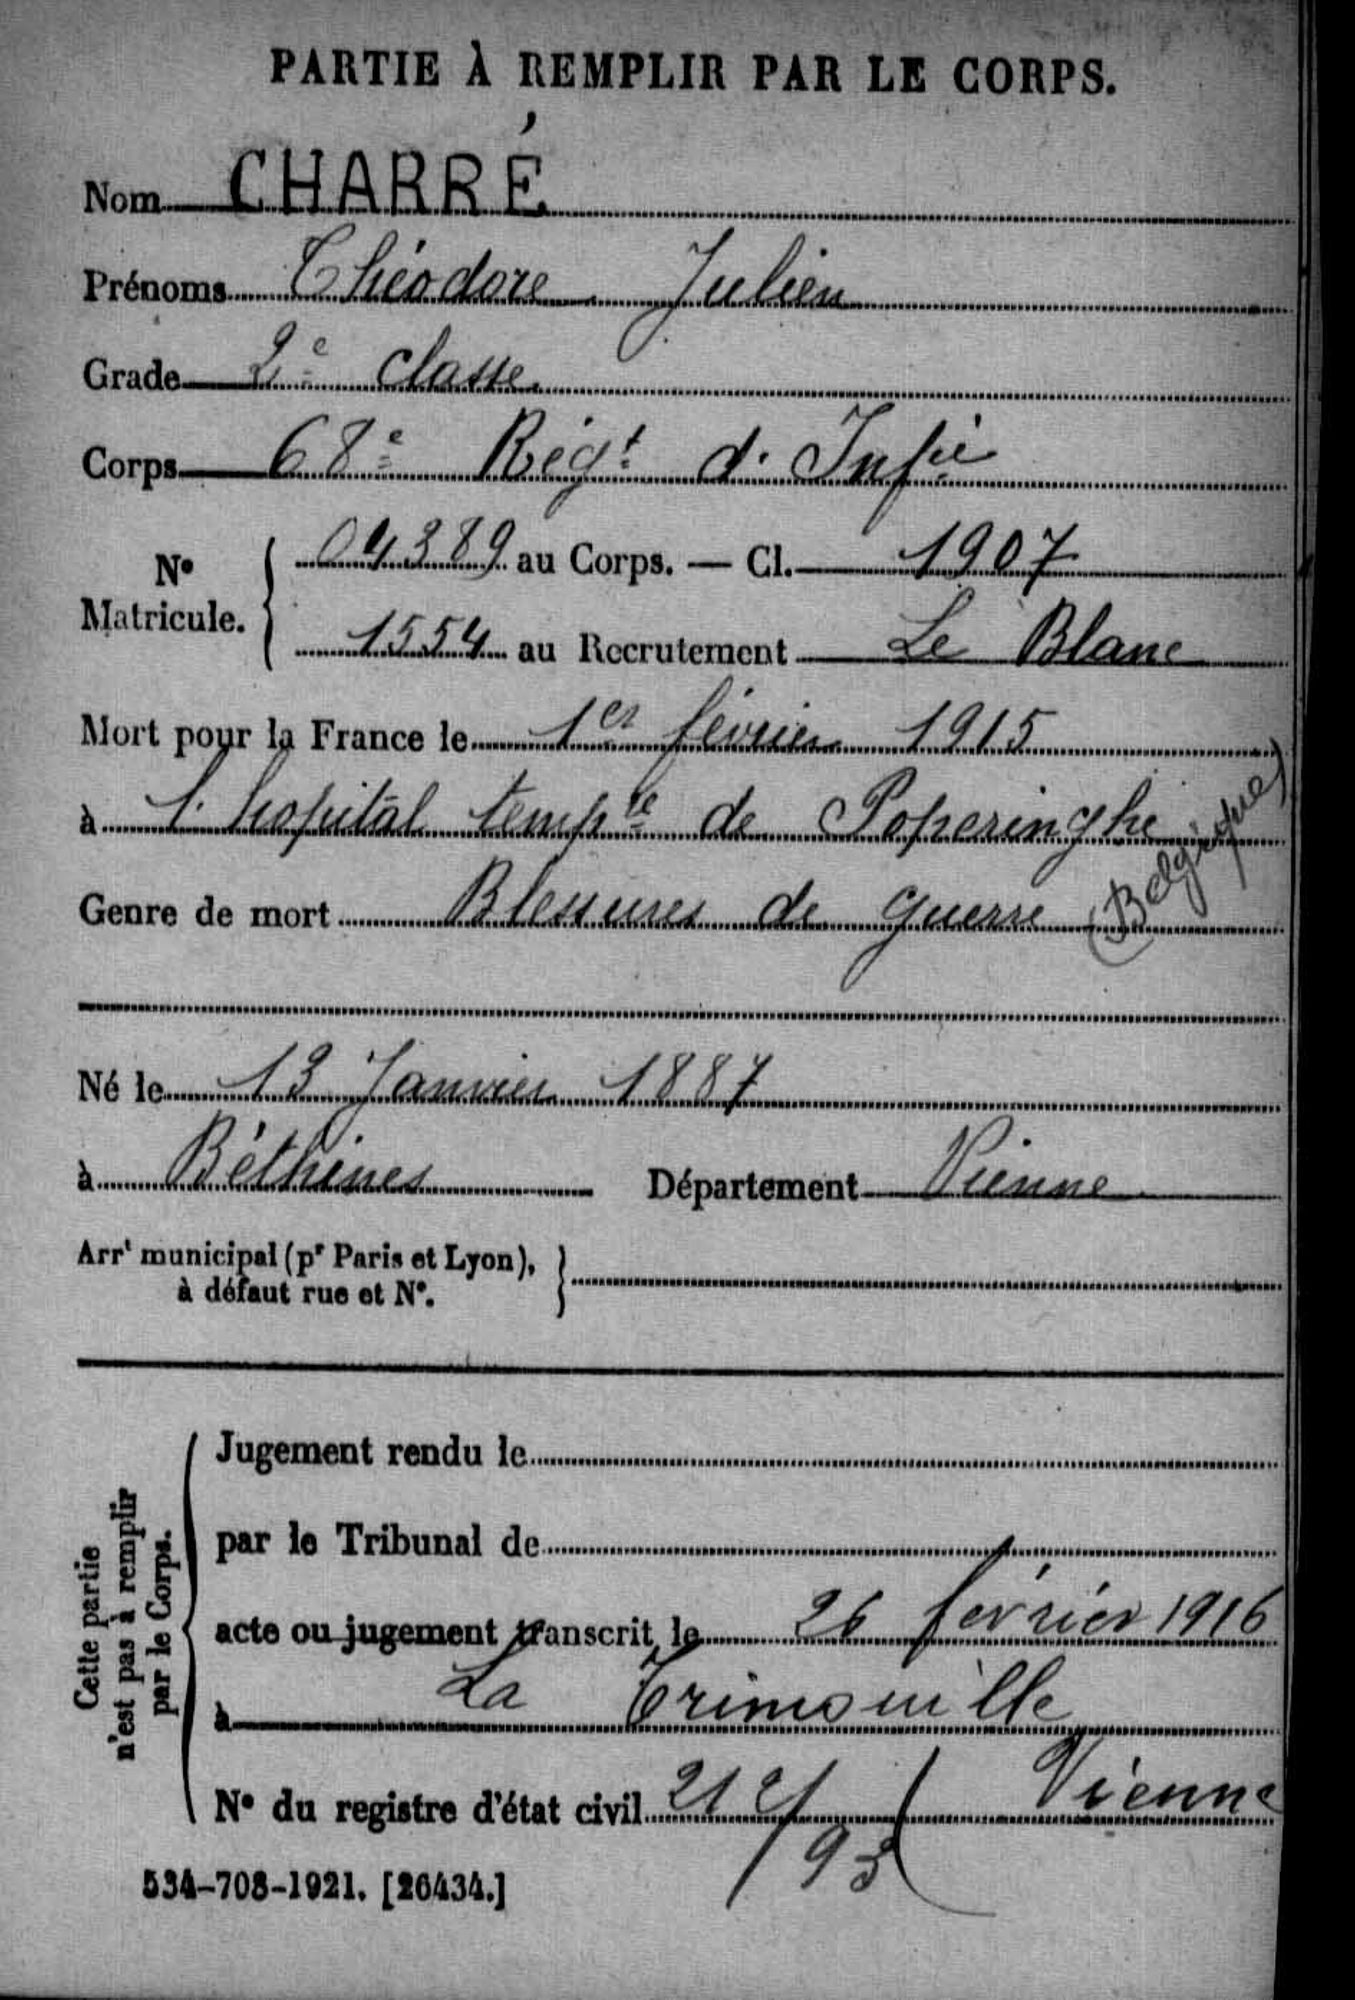 PARTIE À REMPLIR PAR LE CORPS.
Nom CHARRÉ
Prénoms Théodore Julien
Grade 2e classe
Corps 68e Régt d'Infie
No Matricule. { 04389 au Corps. — Cl. 1907
1554 au Recrutement Le Blanc
Mort pour la France le 1er février 1915
à l'hopital tempre de Poperinghe (Belgique)
Genre de mort Blessures de guerre
Né le 13 Janvier 1887
à Béthines Département Vienne
Arrt municipal (pr Paris et Lyon),
à défaut rue et No.
Cette partie
n'est pas à remplir
par le Corps.
Jugement rendu le
par le Tribunal de
acte ou jugement transcrit le 26 février 1916
à La Trimouille
No du registre d'état civil 212/93 ( Vienne
534-708-1921. [26434.]